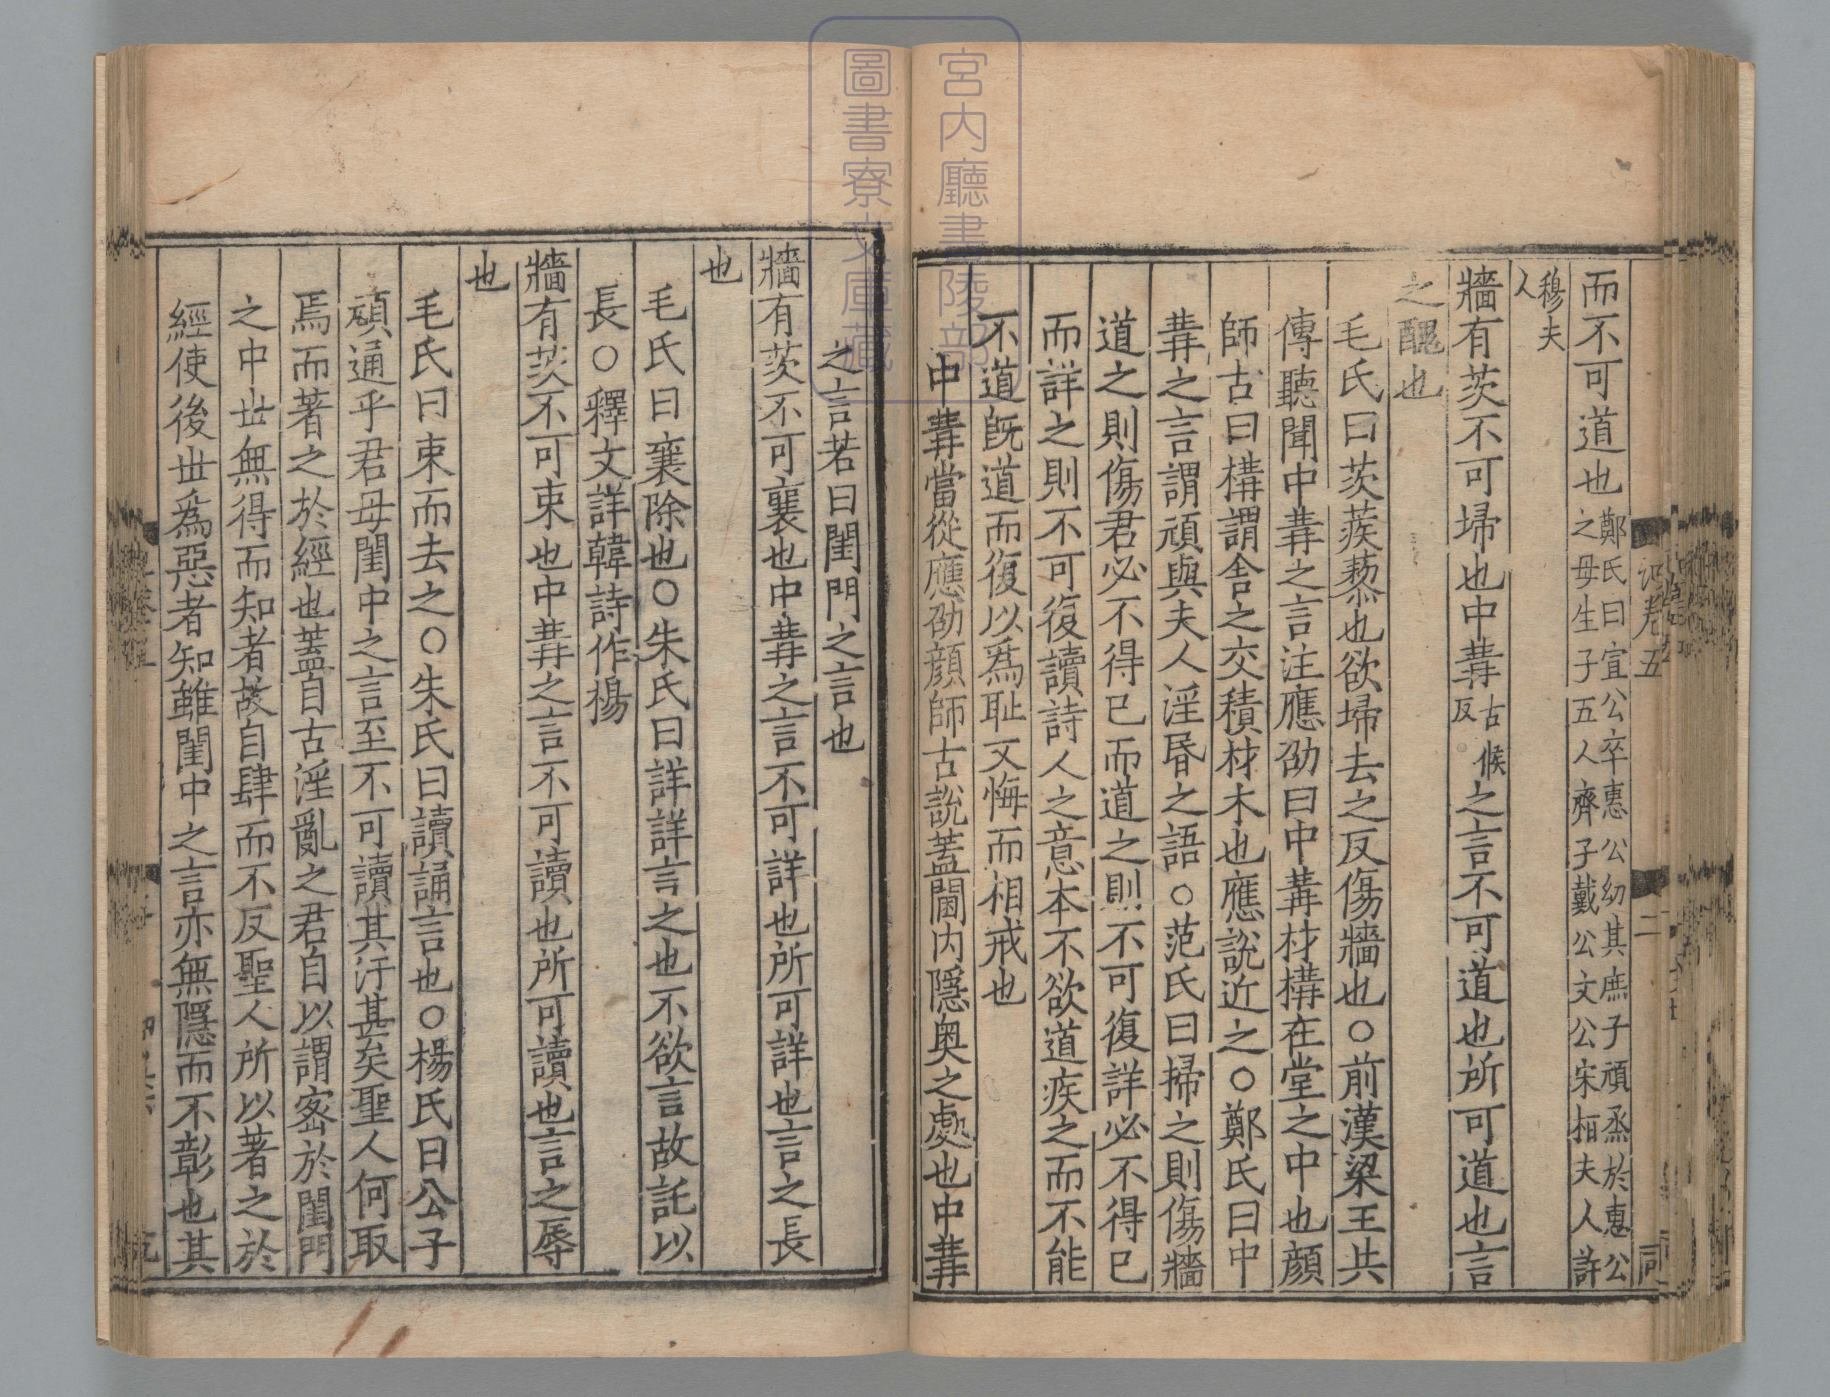 而不可道也鄭氏曰宣公卒惠公幼其庶子頑烝於惠公
之母生子五人齊子戴公文公宋桓夫人許
穆夫
人
牆有茨不可埽也中冓古候
反之言不可道也所可道也言
之醜也
毛氏曰茨蒺藜也欲埽去之反傷牆也○前漢梁王共
傳聽聞中冓之言注應劭曰中冓材構在堂之中也顔
師古曰構謂舍之交積材木也應說近之○鄭氏曰中
冓之言謂頑與夫人淫昬之語○范氏曰掃之則傷牆
道之則傷君必不得已而道之則不可復詳必不得已
而詳之則不可復讀詩人之意本不欲道疾之而不能
不道旣道而復以爲恥又悔而相戒也
中冓當從應劭顔師古說蓋閫内隱奥之處也中冓
之言若曰閨門之言也
牆有茨不可襄也中冓之言不可詳也所可詳也言之長
也
毛氏曰襄除也○朱氏曰詳詳言之也不欲言故託以
長○釋文詳韓詩作揚
牆有茨不可束也中冓之言不可讀也所可讀也言之辱
也
毛氏曰束而去之○朱氏曰讀誦言也○楊氏曰公子
頑通乎君母閨中之言至不可讀其汙甚矣聖人何取
焉而著之於經也蓋自古淫亂之君自以謂宻於閨門
之中世無得而知者故自肆而不反聖人所以著之於
經使後世爲惡者知雖閨中之言亦無隱而不彰也其
宮内廳書陵部
圖書寮文庫藏